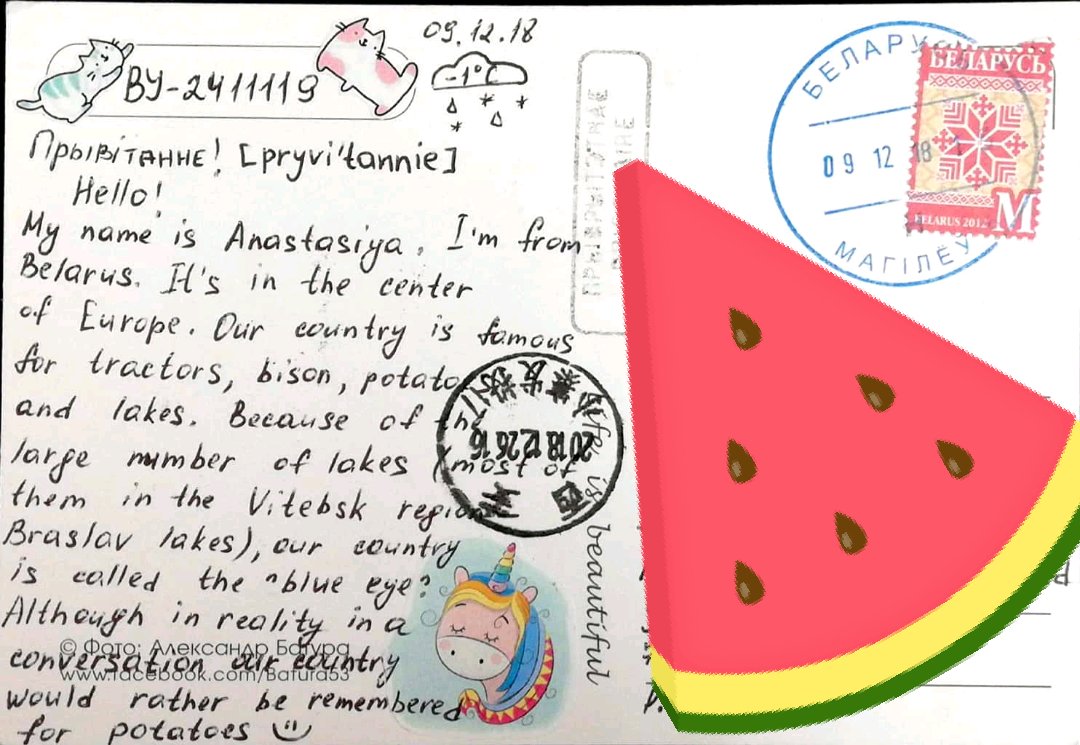 09.12.18
BY-2411119
-1°C
Прывiтанне! [pryvi'tannie]
Hello!
My name is Anastasiya. I'm from
Belarus. It's in the center
of Europe. Our country is famous
for tractors, bison, potato
and lakes. Because of the
large number of lakes (most of
them in the Vitebsk region,
Braslav lakes), our country
is called the "blue eye".
Although in reality in a
conversation our country
would rather be remembered
for potatoes
© Фото: Александр Батура
www.facebook.com/Batura53
Life is beautiful
2018.12.26.16
БЕЛАРУСЬ
09 12 18
МАГІЛЁЎ
БЕЛАРУСЬ
BELARUS 2012
M